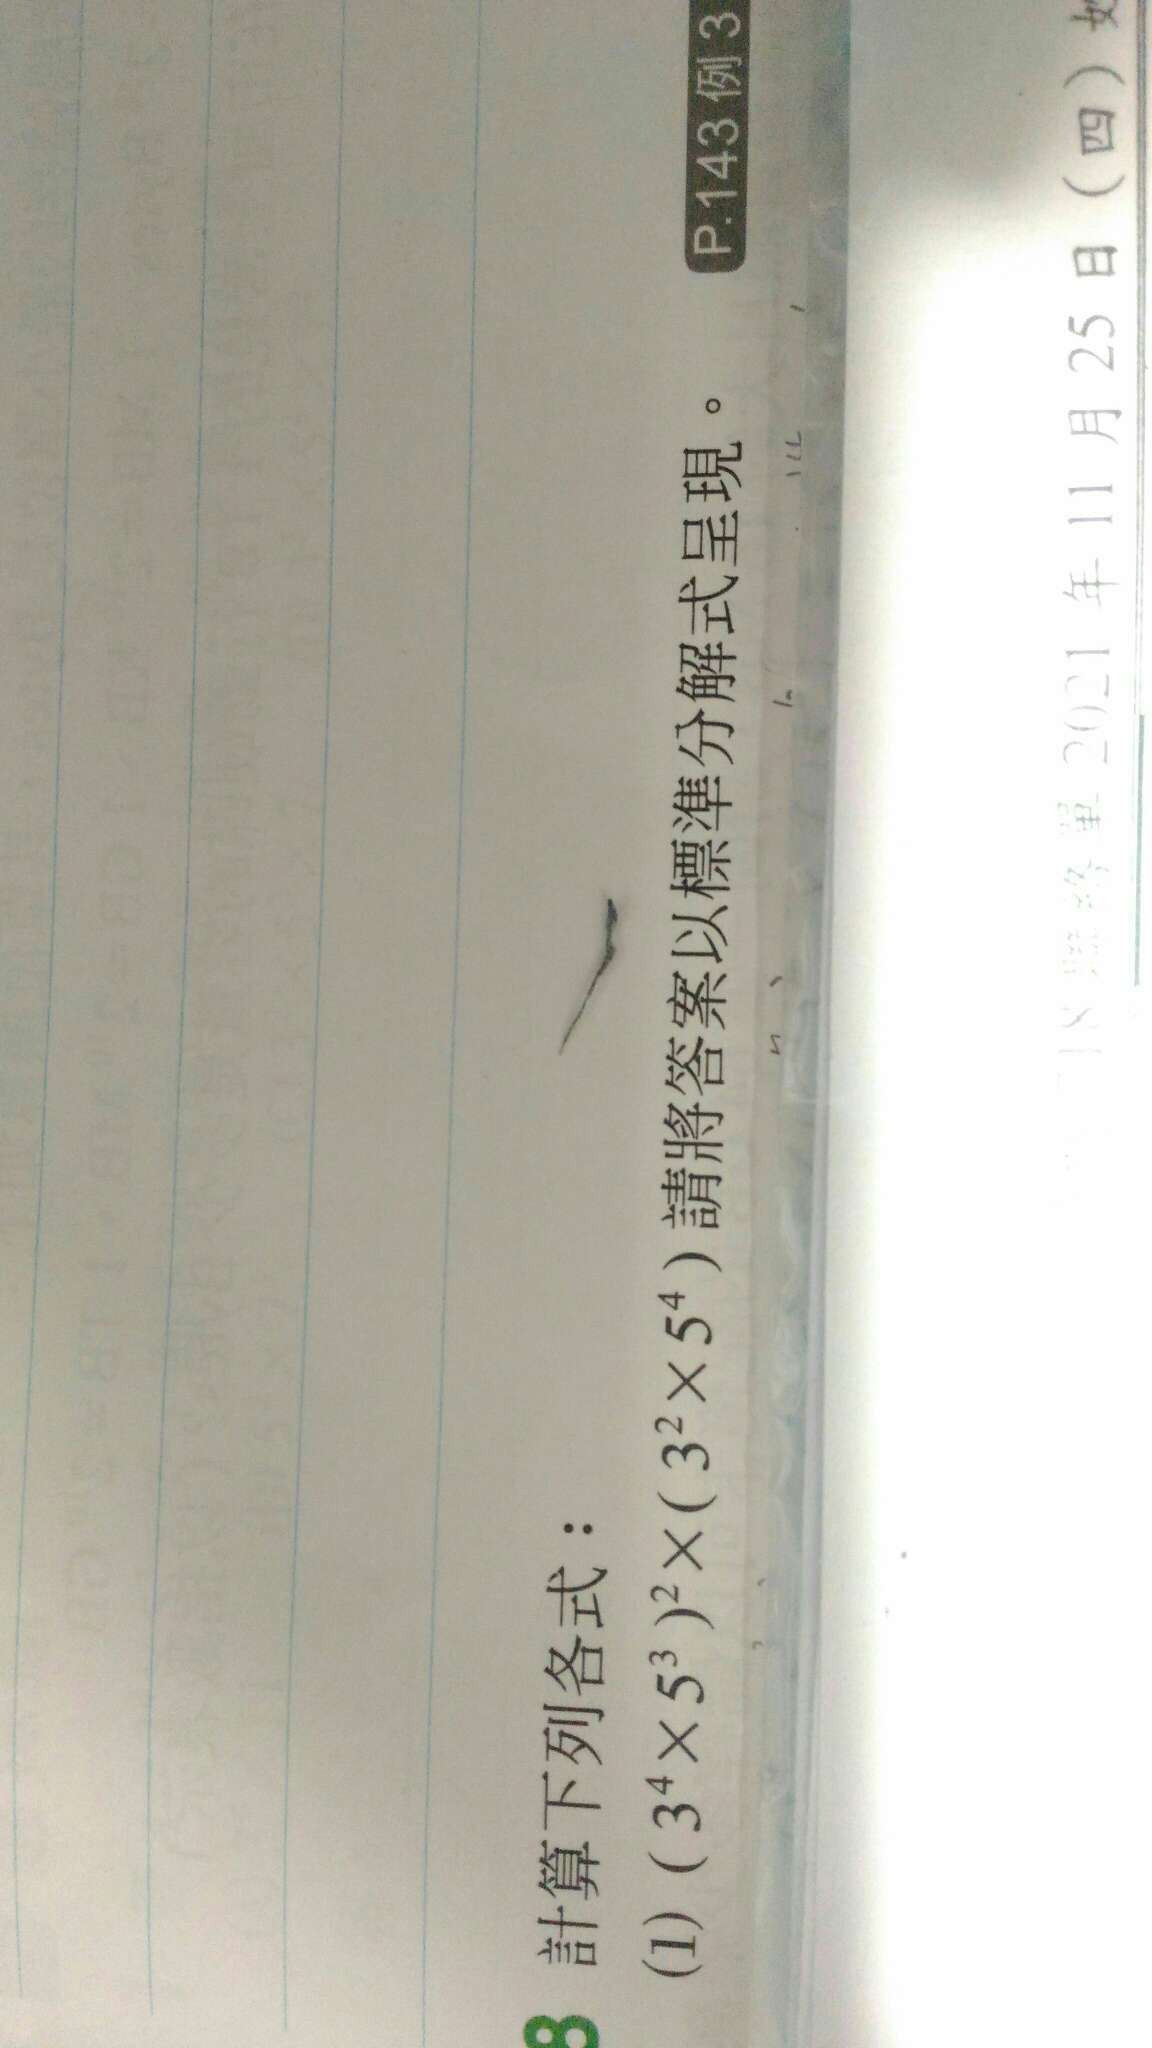 8 計算下列各式：
(1) ( 3⁴×5³ )²×( 3²×5⁴ ) 請將答案以標準分解式呈現。 P.143 例 3
聯絡單 2021 年 11 月 25 日 ( 四 )